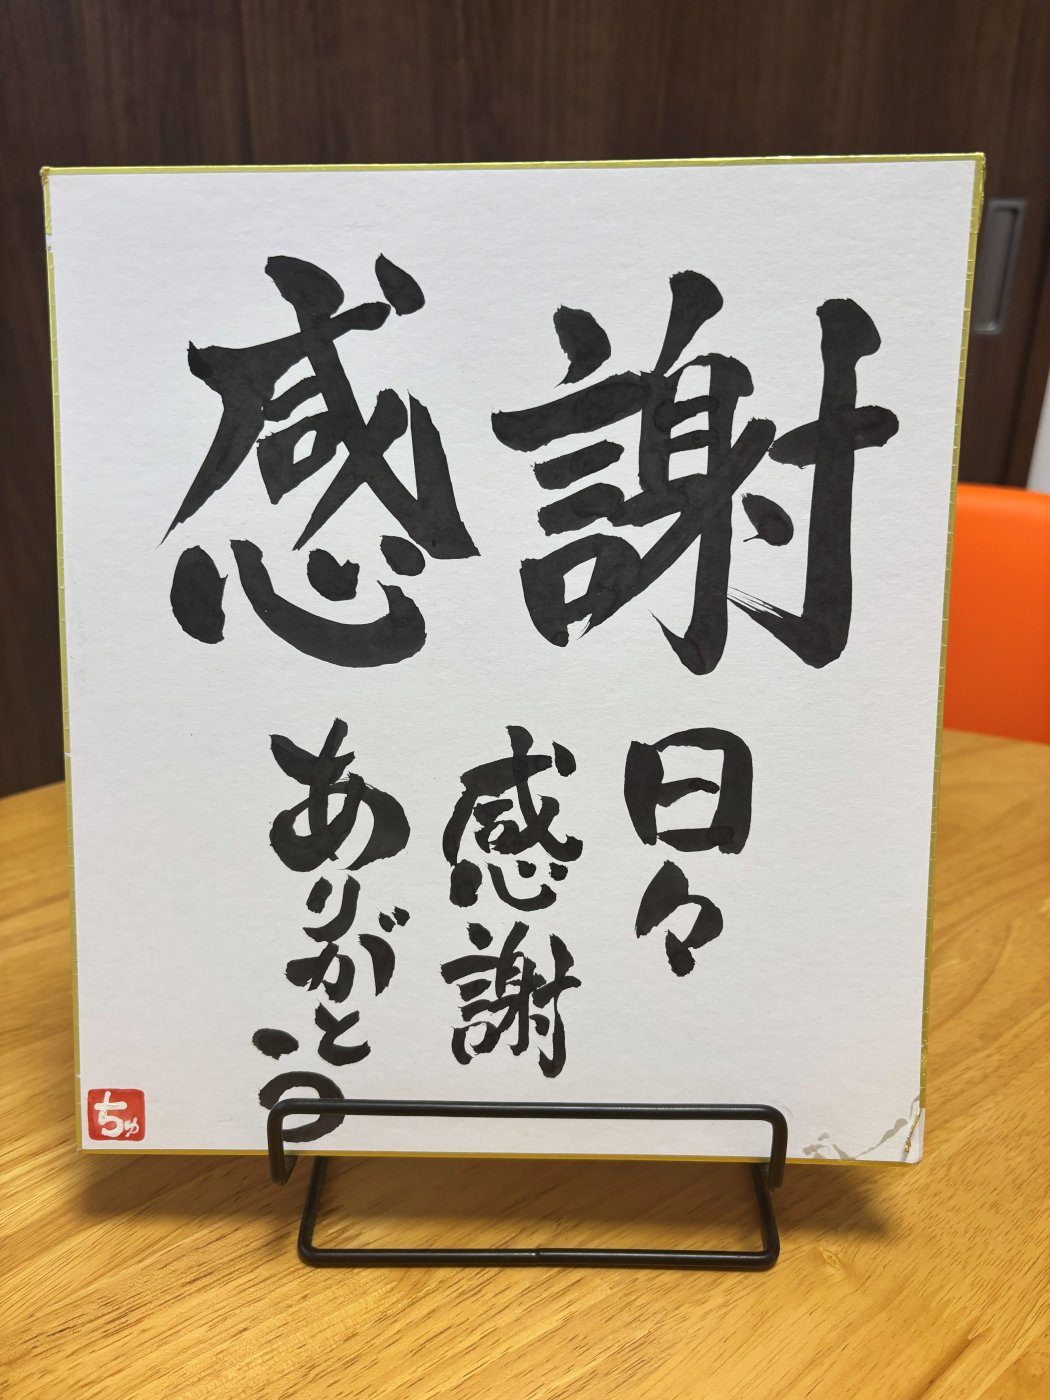 感謝
日々
感謝
ありがとう
ちゅ